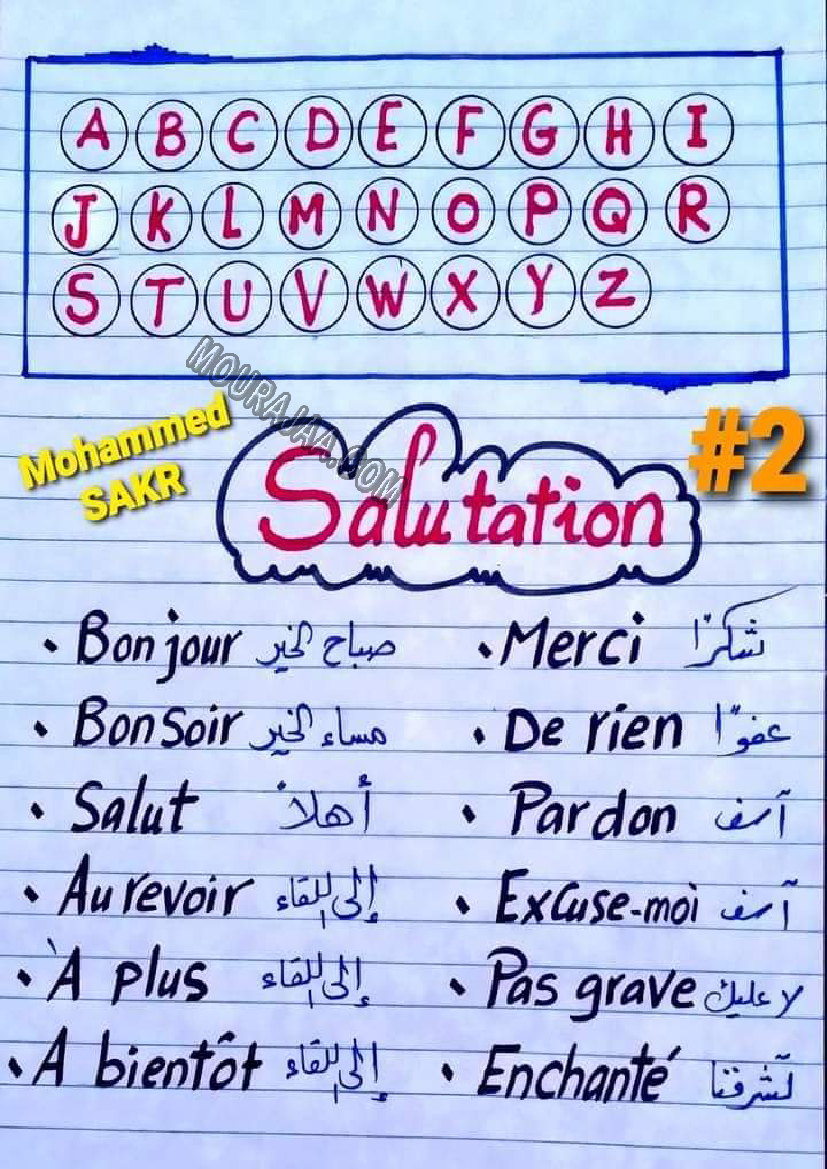 A B C D E F G H I
J K L M N O P Q R
S T U V W X Y Z
MOURAJAA.COM
Mohammed
SAKR
#2
Salutation
• Bonjour صباح الخير
• Bonsoir مساء الخير
• Salut أهلاً
• Au revoir إلى اللقاء
• À plus إلى اللقاء
• A bientôt إلى اللقاء
• Merci شكرًا
• De rien عفوًا
• Pardon آسف
• Excuse-moi آسف
• Pas grave لا عليك
• Enchanté تشرفنا